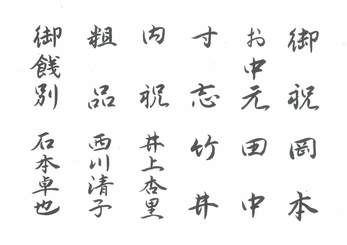 御祝 岡本
お中元 田中
寸志 竹井
内祝 井上杏里
粗品 西川清子
御餞別 石本卓也